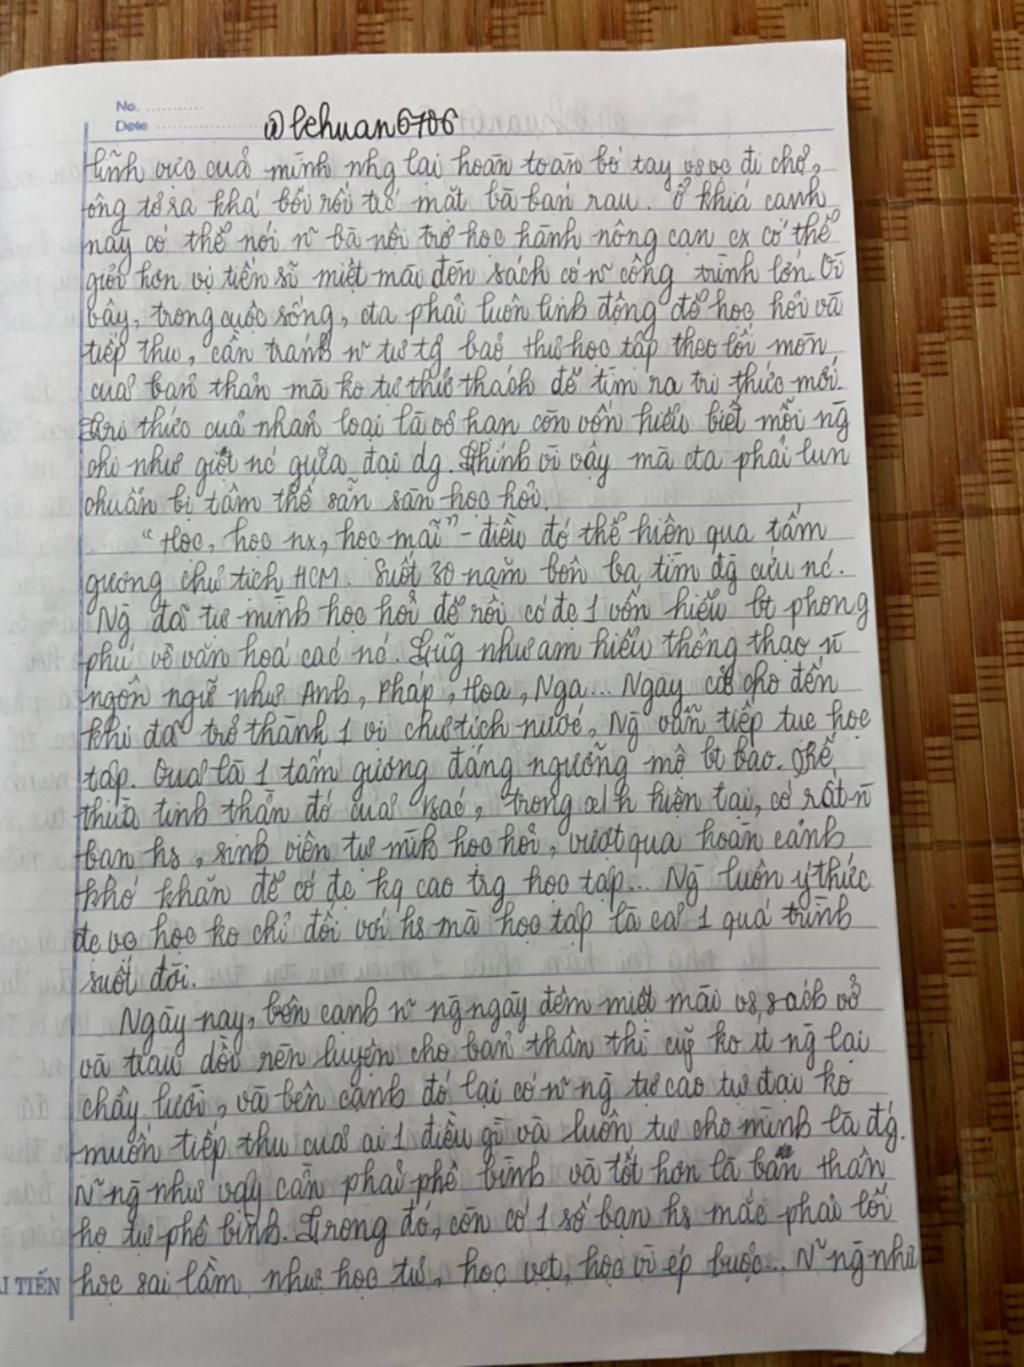 No. ...........
Date ..................
@lehuan6706
lĩnh vực của mình nhg lại hoàn toàn bó tay vs vc đi chợ,
ông tỏ ra khá bối rối trc mắt bà bán rau. Ở khía cạnh
này có thể nói n~ bà nội trợ học hành nông cạn cx có thể
giỏi hơn vị tiến sĩ miệt mài đèn sách có n~ công trình lớn. Vì
vậy, trong cuộc sống, cta phải luôn linh động để học hỏi và
tiếp thu, cần tránh n~ tư tg bảo thủ học tập theo lối mòn
của bản thân mà ko tự thử thách để tìm ra tri thức mới.
Tri thức của nhân loại là vô hạn còn vốn hiểu biết mỗi ng
chỉ như giọt nc giữa đại dg. Chính vì vậy mà cta phải lun
chuẩn bị tâm thế sẵn sàn học hỏi.
"Học, học nx, học mãi" - điều đó thể hiện qua tấm
gương chủ tịch HCM. Suốt 30 năm bôn ba tìm đg cứu nc.
Ng đã tự mình học hỏi để rồi có đc 1 vốn hiểu bt phong
phú về văn hoá các nc. Cũg như am hiểu thông thạo n
ngôn ngữ như Anh, Pháp, Hoa, Nga... Ngay cả cho đến
khi đã trở thành 1 vị chủ tịch nước, Ng vẫn tiếp tục học
tập. Quả là 1 tấm gương đáng ngưỡng mộ bt bao. Kế
thừa tinh thần đó của Bác, trong xh hiện tại, có rất n
bạn hs, sinh viên tự mình học hỏi, vượt qua hoàn cảnh
khó khăn để có đc kq cao trg học tập... Ng luôn ý thức
đc vc học ko chỉ đối với hs mà học tập là cả 1 quá trình
suốt đời.
Ngày nay, bên cạnh n~ ng ngày đêm miệt mài vs sách vở
và trau dồi rèn luyện cho bản thân thì cũg ko ít ng lại
chây lười, và bên cạnh đó lại có n~ ng tự cao tự đại ko
muốn tiếp thu của ai 1 điều gì và luôn tự cho mình là đg.
N~ ng như vậy cần phải phê bình và tốt hơn là bản thân
họ tự phê bình. Trong đó, còn có 1 số bạn hs mắc phải lối
học sai lầm như học tủ, học vẹt, học vì ép buộc... N~ ng như
I TIẾN